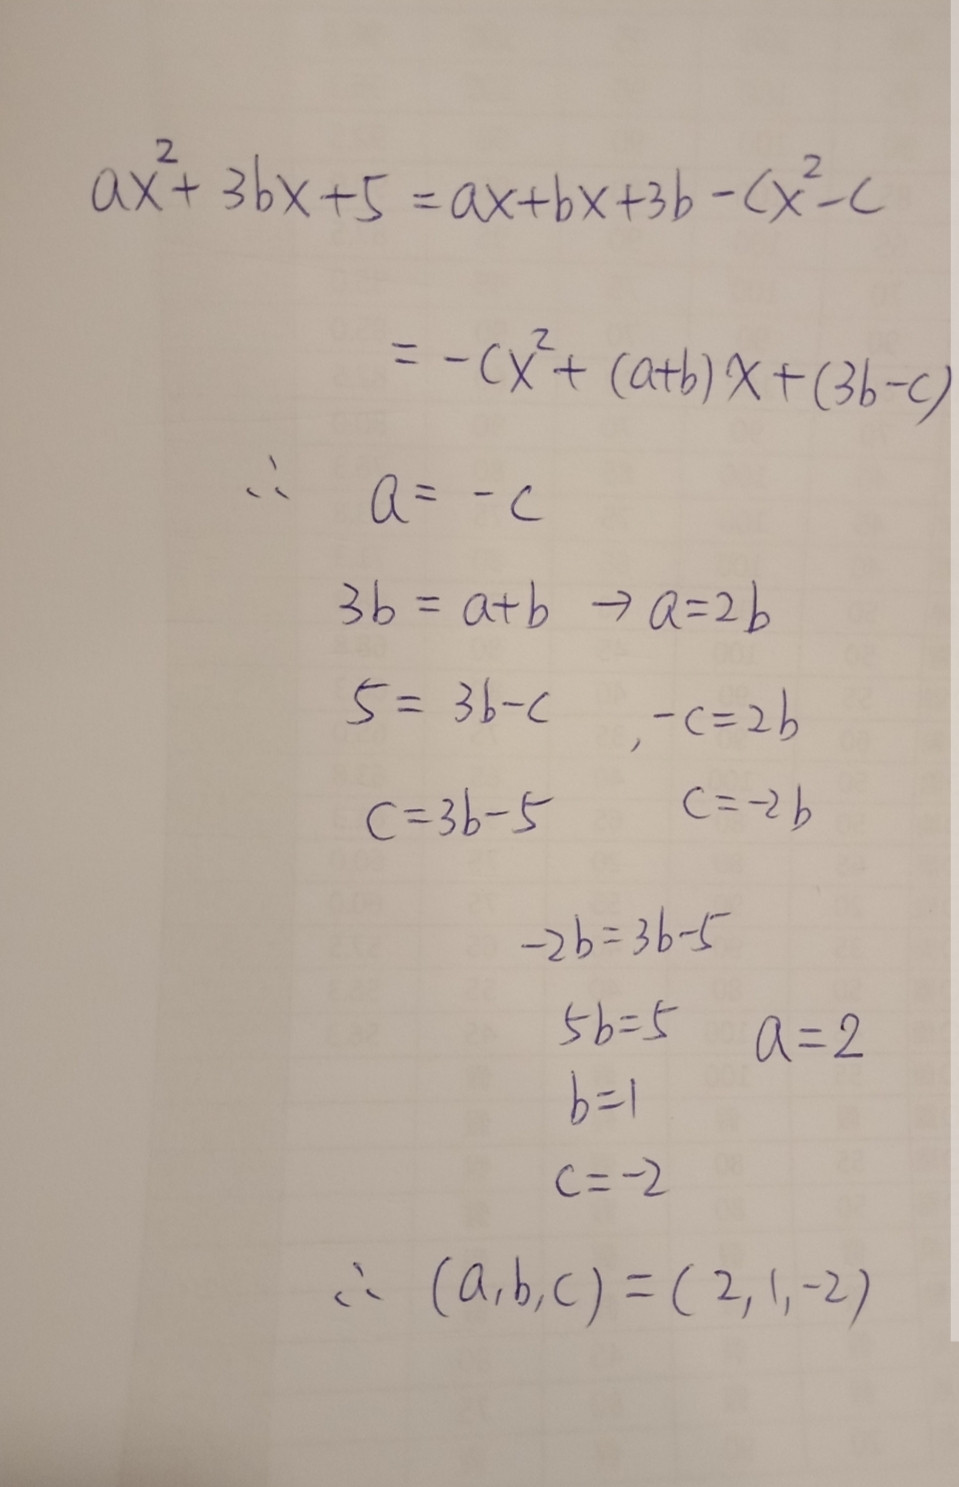 ax²+ 3bx+5 = ax+bx+3b -cx²-c
= -cx²+ (a+b)x+(3b-c)
∴ a= -c
3b = a+b → a=2b
5= 3b-c , -c=2b
c=3b-5 c=-2b
-2b=3b-5
5b=5 a=2
b=1
c=-2
∴ (a,b,c) = (2,1,-2)